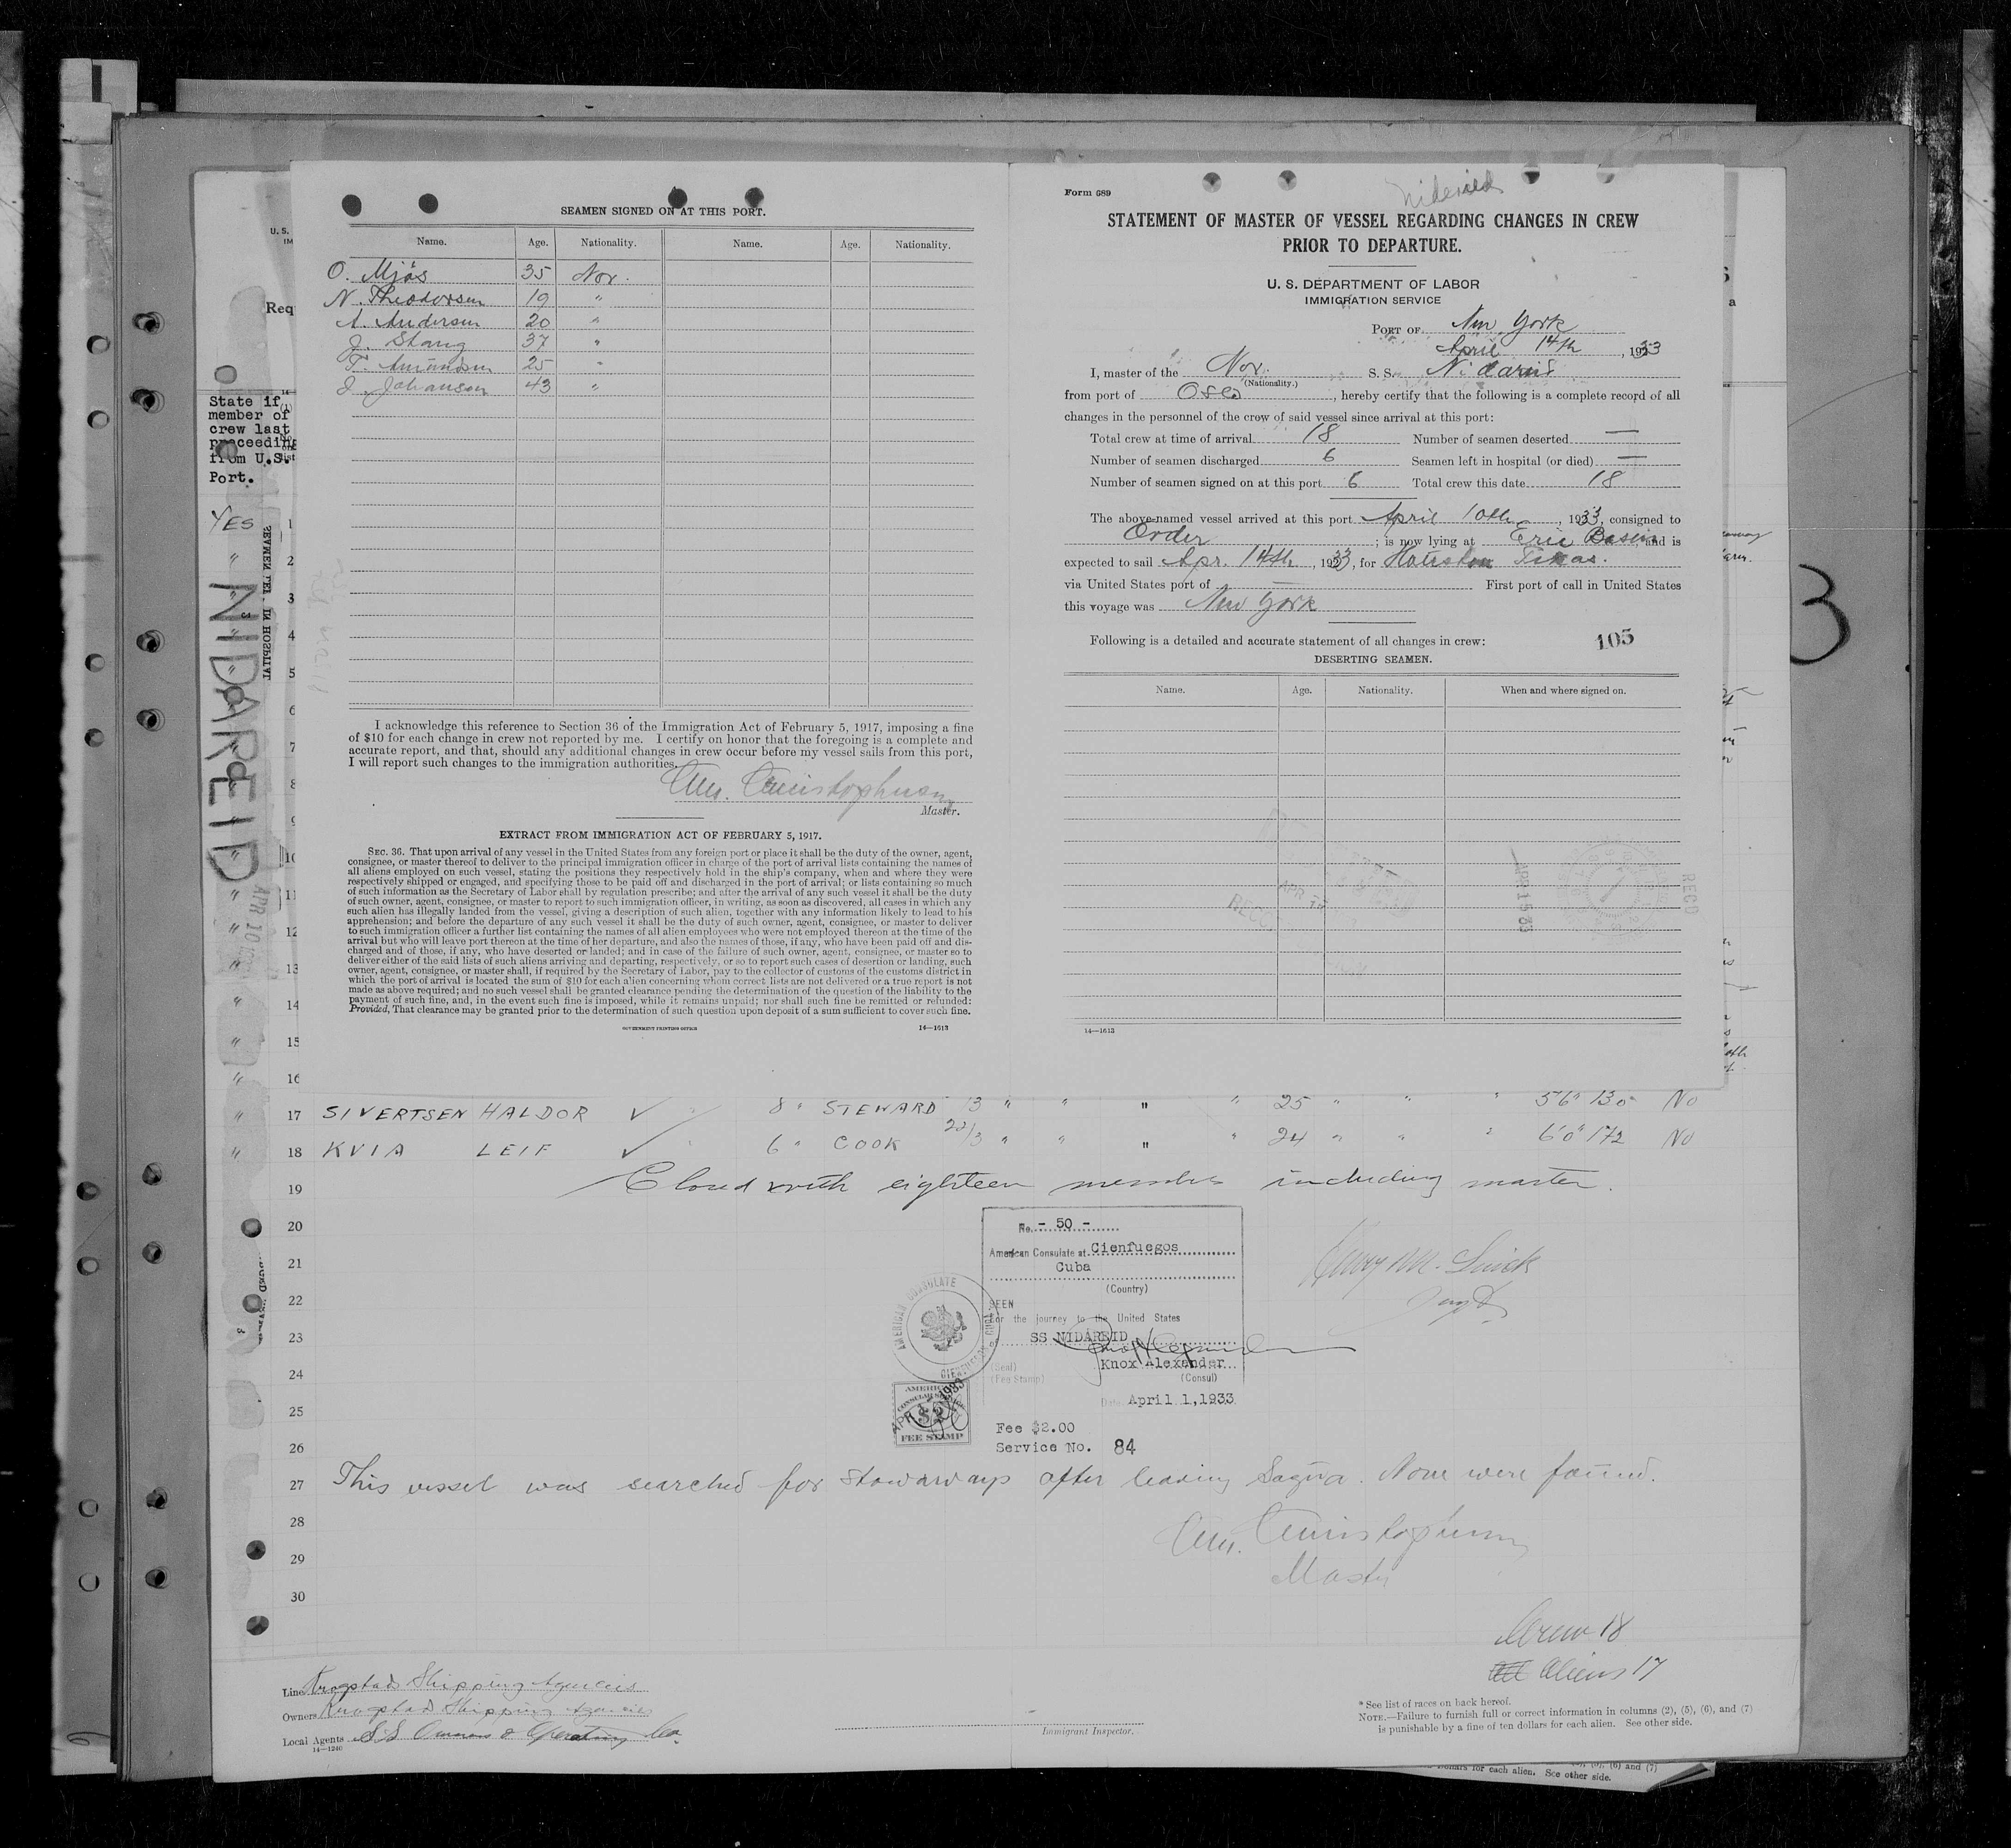 SEAMEN SIGNED ON AT THIS PORT.
Name. Age. Nationality. Name. Age. Nationality.
O. Mjös 35 Nor.
N. Theodorsen 19 "
A. Andersen 20 "
J. Stang 37 "
F. Amundsen 25 "
J. Johansen 43 "
I acknowledge this reference to Section 36 of the Immigration Act of February 5, 1917, imposing a fine
of $10 for each change in crew not reported by me. I certify on honor that the foregoing is a complete and
accurate report, and that, should any additional changes in crew occur before my vessel sails from this port,
I will report such changes to the immigration authorities.
Master.
EXTRACT FROM IMMIGRATION ACT OF FEBRUARY 5, 1917.
SEC. 36. That upon arrival of any vessel in the United States from any foreign port or place it shall be the duty of the owner, agent,
consignee, or master thereof to deliver to the principal immigration officer in charge of the port of arrival lists containing the names of
all aliens employed on such vessel, stating the positions they respectively hold in the ship's company, when and where they were
respectively shipped or engaged, and specifying those to be paid off and discharged in the port of arrival; or lists containing so much
of such information as the Secretary of Labor shall by regulation prescribe; and after the arrival of any such vessel it shall be the duty
of such owner, agent, consignee, or master to report to such immigration officer, in writing, as soon as discovered, all cases in which any
such alien has illegally landed from the vessel, giving a description of such alien, together with any information likely to lead to his
apprehension; and before the departure of any such vessel it shall be the duty of such owner, agent, consignee, or master to deliver
to such immigration officer a further list containing the names of all alien employees who were not employed thereon at the time of the
arrival but who will leave port thereon at the time of her departure, and also the names of those, if any, who have been paid off and dis-
charged and of those, if any, who have deserted or landed; and in case of the failure of such owner, agent, consignee, or master so to
deliver either of the said lists of such aliens arriving and departing, respectively, or so to report such cases of desertion or landing, such
owner, agent, consignee, or master shall, if required by the Secretary of Labor, pay to the collector of customs of the customs district in
which the port of arrival is located the sum of $10 for each alien concerning whom correct lists are not delivered or a true report is not
made as above required; and no such vessel shall be granted clearance pending the determination of the question of the liability to the
payment of such fine, and, in the event such fine is imposed, while it remains unpaid; nor shall such fine be remitted or refunded:
Provided, That clearance may be granted prior to the determination of such question upon deposit of a sum sufficient to cover such fine.
GOVERNMENT PRINTING OFFICE 14—1613
Form 689
Nidareid
STATEMENT OF MASTER OF VESSEL REGARDING CHANGES IN CREW
PRIOR TO DEPARTURE.
U. S. DEPARTMENT OF LABOR
IMMIGRATION SERVICE
PORT OF New York
April 14th, 1933
I, master of the Nor. S. S. Nidareid
(Nationality.)
from port of Oslo, hereby certify that the following is a complete record of all
changes in the personnel of the crew of said vessel since arrival at this port:
Total crew at time of arrival 18 Number of seamen deserted —
Number of seamen discharged 6 Seamen left in hospital (or died) —
Number of seamen signed on at this port 6 Total crew this date 18
The above-named vessel arrived at this port April 10th, 1933, consigned to
Order; is now lying at Erie Basin, and is
expected to sail Apr. 14th, 1933, for Houston Texas.
via United States port of — First port of call in United States
this voyage was New York
Following is a detailed and accurate statement of all changes in crew: 105
DESERTING SEAMEN.
Name. Age. Nationality. When and where signed on.
APR 15 33
RECD
14—1613
State if
member of
crew last
proceeding
from U.S.
Port.
YES
NIDAREID
SEAMEN LEFT IN HOSPITAL
APR 10
3
17 SIVERTSEN HALDOR ✓ 8 " STEWARD 13 " " " " 25 " " " 5'6" 130 No
18 KVIA LEIF ✓ 6 " COOK 22/3 " " " " 24 " " " 6'0" 172 No
19 Closed with eighteen members including master.
20
21
22
23
24
25
26
No. - 50 -
American Consulate at Cienfuegos
Cuba
(Country)
SEEN
For the journey to the United States
SS NIDAREID
Knox Alexander
(Seal)
(Fee Stamp)
(Consul)
Date April 1,1933
AMERICAN CONSULATE
AMERICAN
CONSULAR SERVICE
$2
FEE STAMP
APR 1 1933
Fee $2.00
Service No. 84
27 This vessel was searched for stowaways after leaving Sagua. None were found.
28
29
30
Master
Crew 18
Aliens 17
Line Krogstad Shipping Agencies
Owners Krogstad Shipping Agencies
Local Agents S.S Owners & Operating Co.
14—1240
Immigrant Inspector.
* See list of races on back hereof.
NOTE.—Failure to furnish full or correct information in columns (2), (5), (6), and (7)
is punishable by a fine of ten dollars for each alien. See other side.